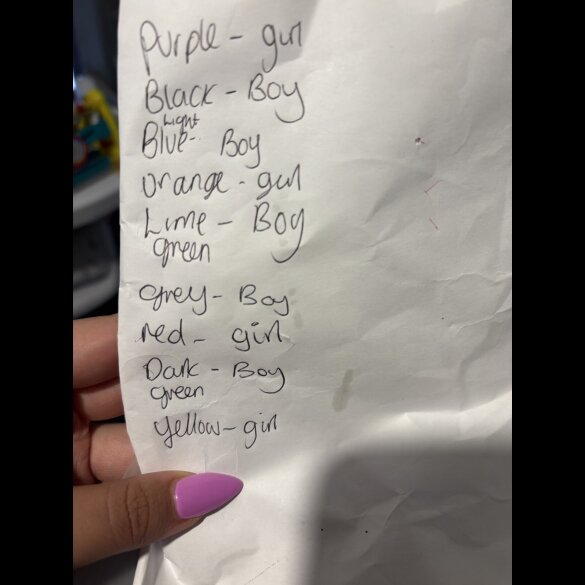 purple - girl
Black - Boy
Light
Blue - Boy
orange - girl
Lime - Boy
green
grey - Boy
red - girl
Dark - Boy
green
yellow - girl